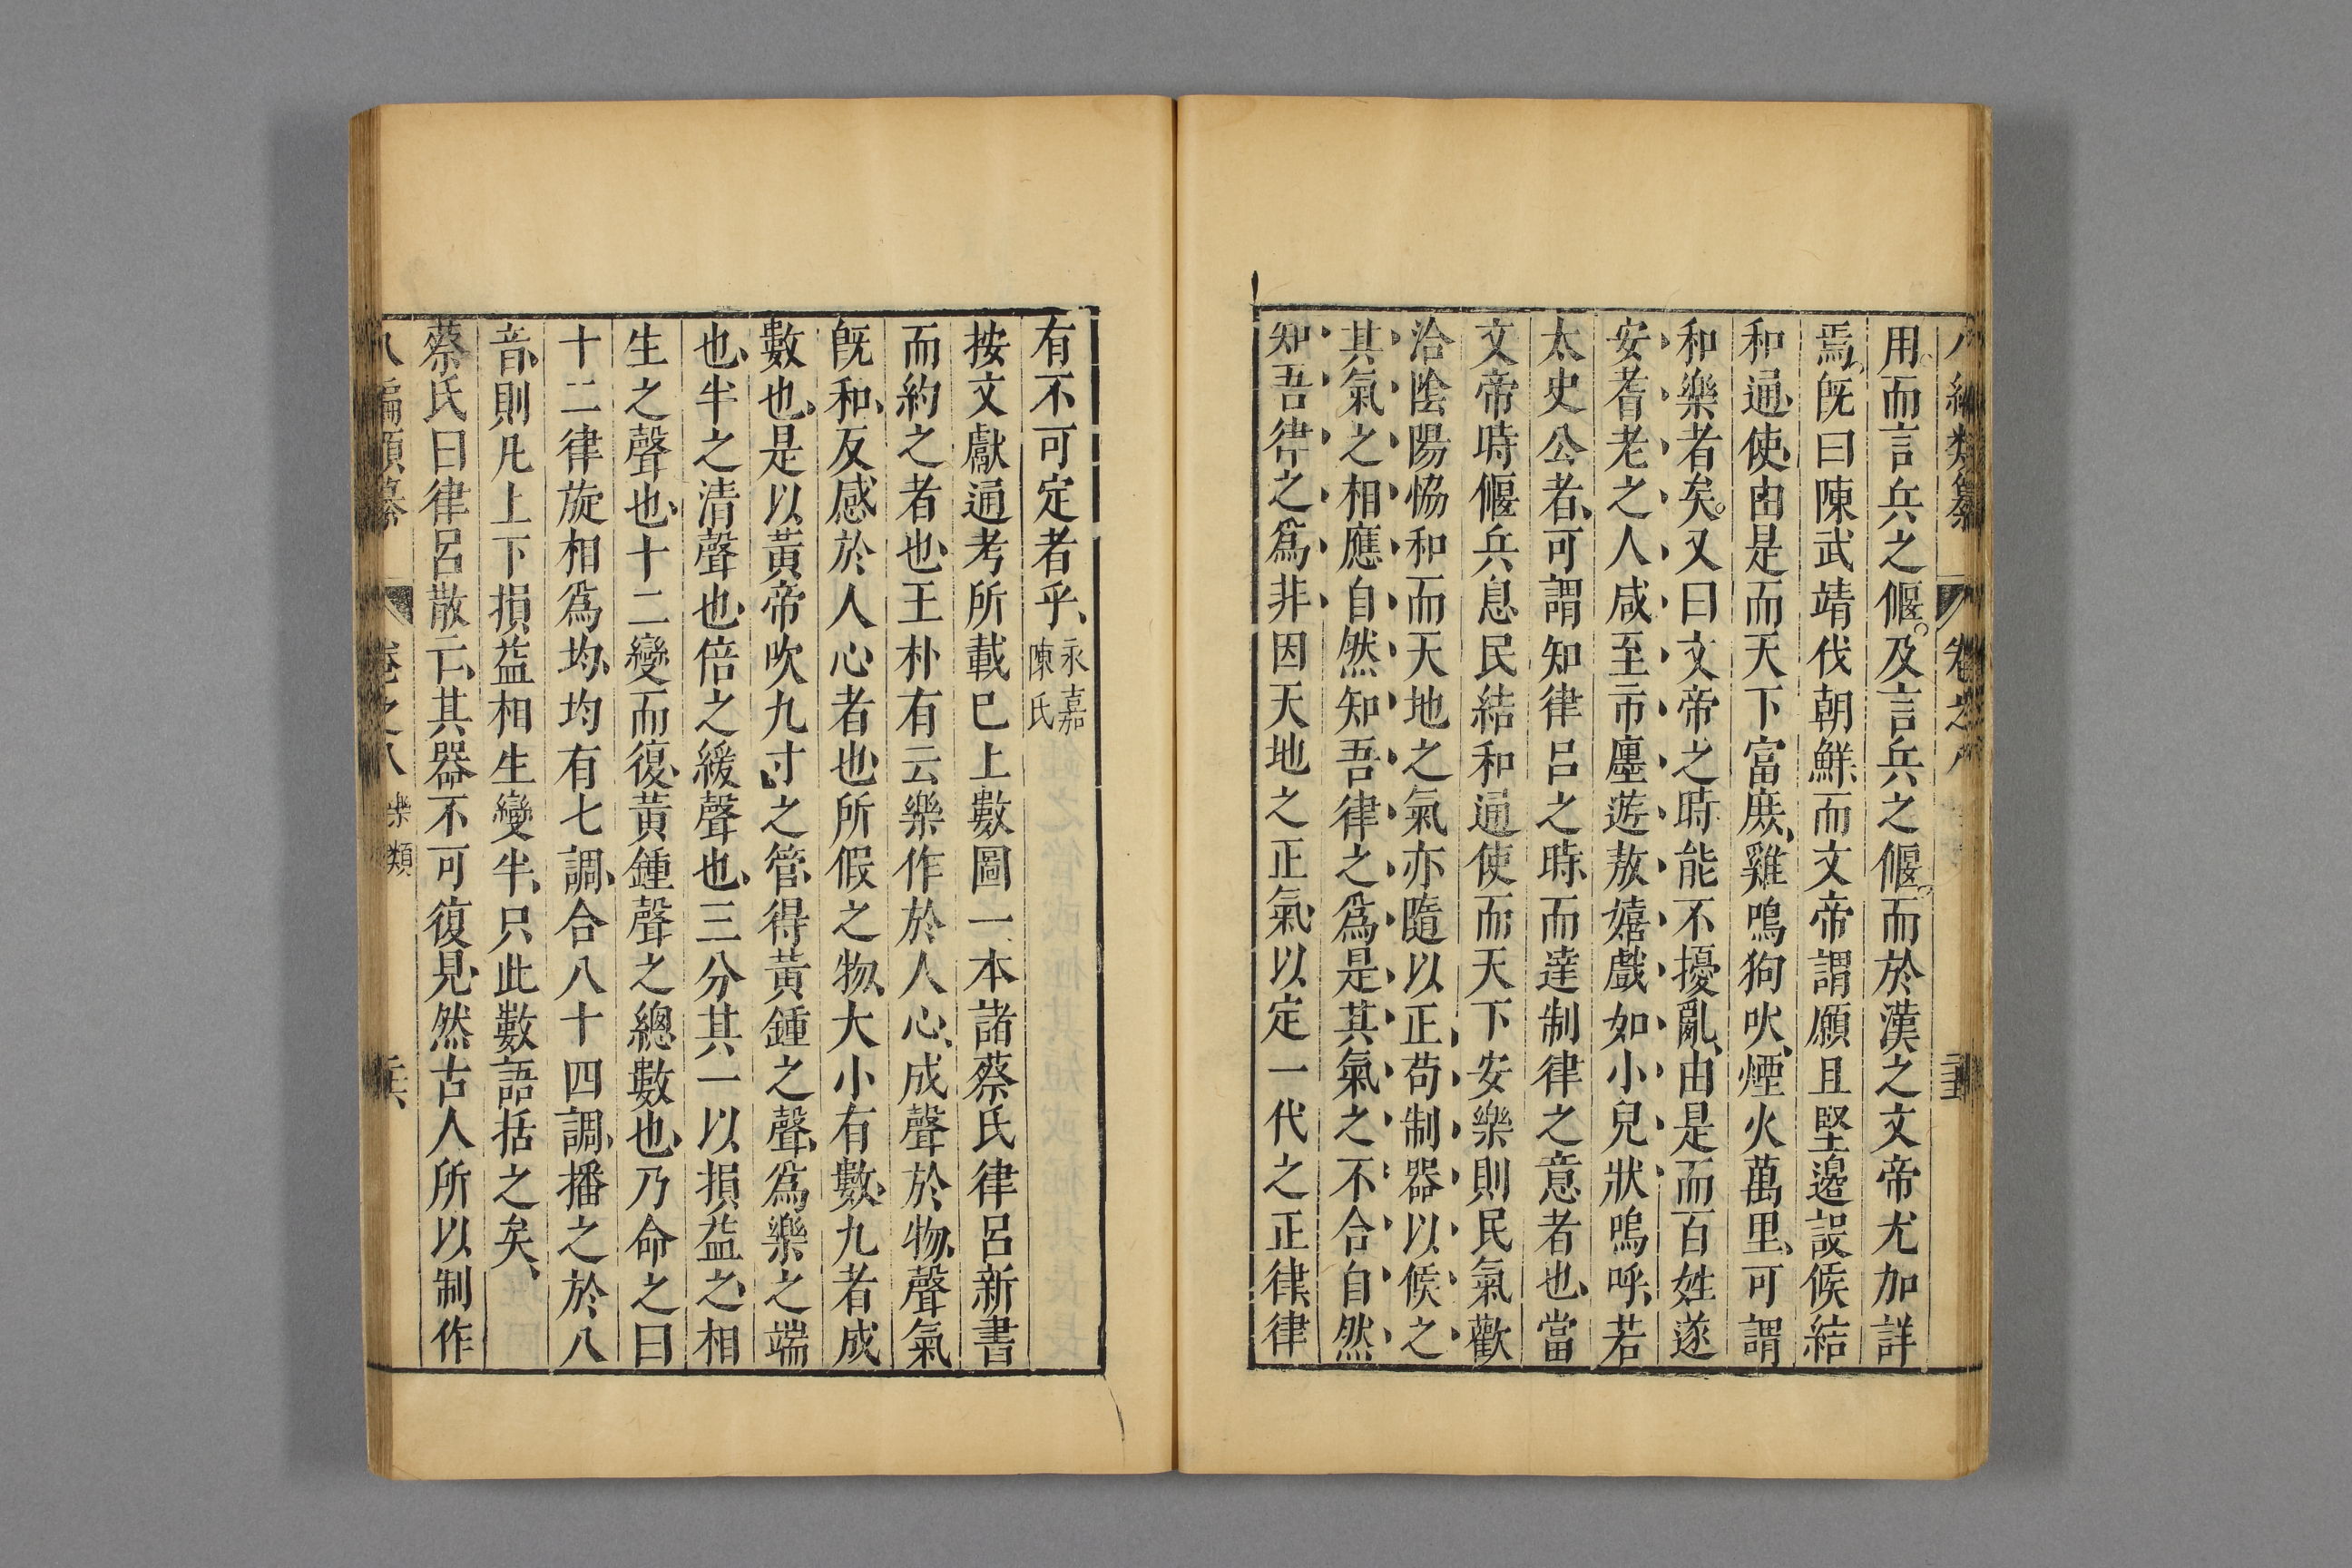 八編類纂 卷之八
用而言兵之偃及言兵之偃而於漢之文帝尤加詳
焉旣曰陳武靖伐朝鮮而文帝謂願且堅邊設候結
和通使由是而天下富庶雞鳴狗吠煙火萬里可謂
和樂者矣又曰文帝之時能不擾亂由是而百姓遂
安耆老之人咸至市廛遊敖嬉戲如小兒狀嗚呼若
太史公者可謂知律呂之時而達制律之意者也當
文帝時偃兵息民結和通使而天下安樂則民氣歡
洽陰陽恊和而天地之氣亦隨以正苟制器以候之
其氣之相應自然知吾律之爲是其氣之不合自然
知吾律之爲非因天地之正氣以定一代之正律律
有不可定者乎永嘉陳氏
按文獻通考所載已上數圖一本諸蔡氏律呂新書
而約之者也王朴有云樂作於人心成聲於物聲氣
旣和反感於人心者也所假之物大小有數九者成
數也是以黃帝吹九寸之管得黃鍾之聲爲樂之端
也半之清聲也倍之緩聲也三分其一以損益之相
生之聲也十二變而復黃鍾聲之總數也乃命之曰
十二律旋相爲均均有七調合八十四調播之於八
音則凡上下損益相生變半只此數語括之矣
蔡氏曰律呂散亡其器不可復見然古人所以制作
八編類纂 卷之八 樂類